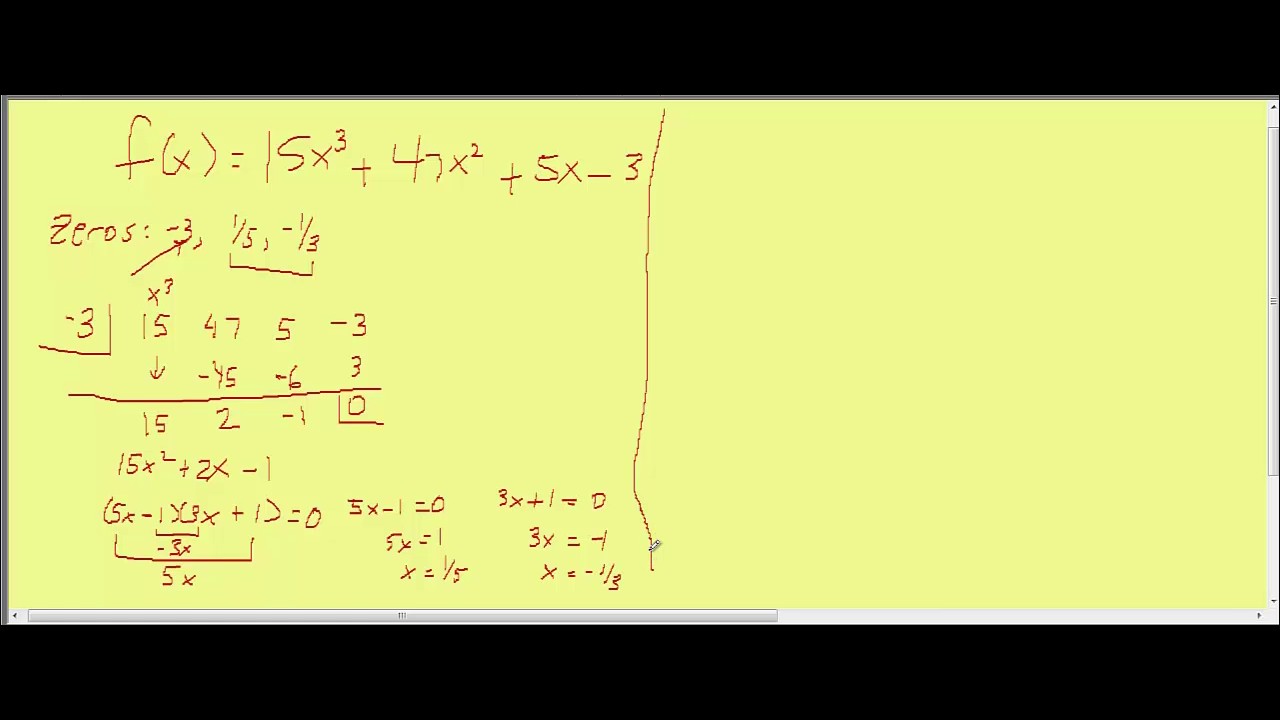 f(x) = 15x³ + 47x² + 5x - 3
Zeros: -3, 1/5, -1/3
x³
-3 15 47 5 -3
↓ -45 -6 3
15 2 -1 0
15x² + 2x - 1
(5x - 1)(3x + 1) = 0 5x - 1 = 0 3x + 1 = 0
-3x 5x = 1 3x = -1
5x x = 1/5 x = -1/3